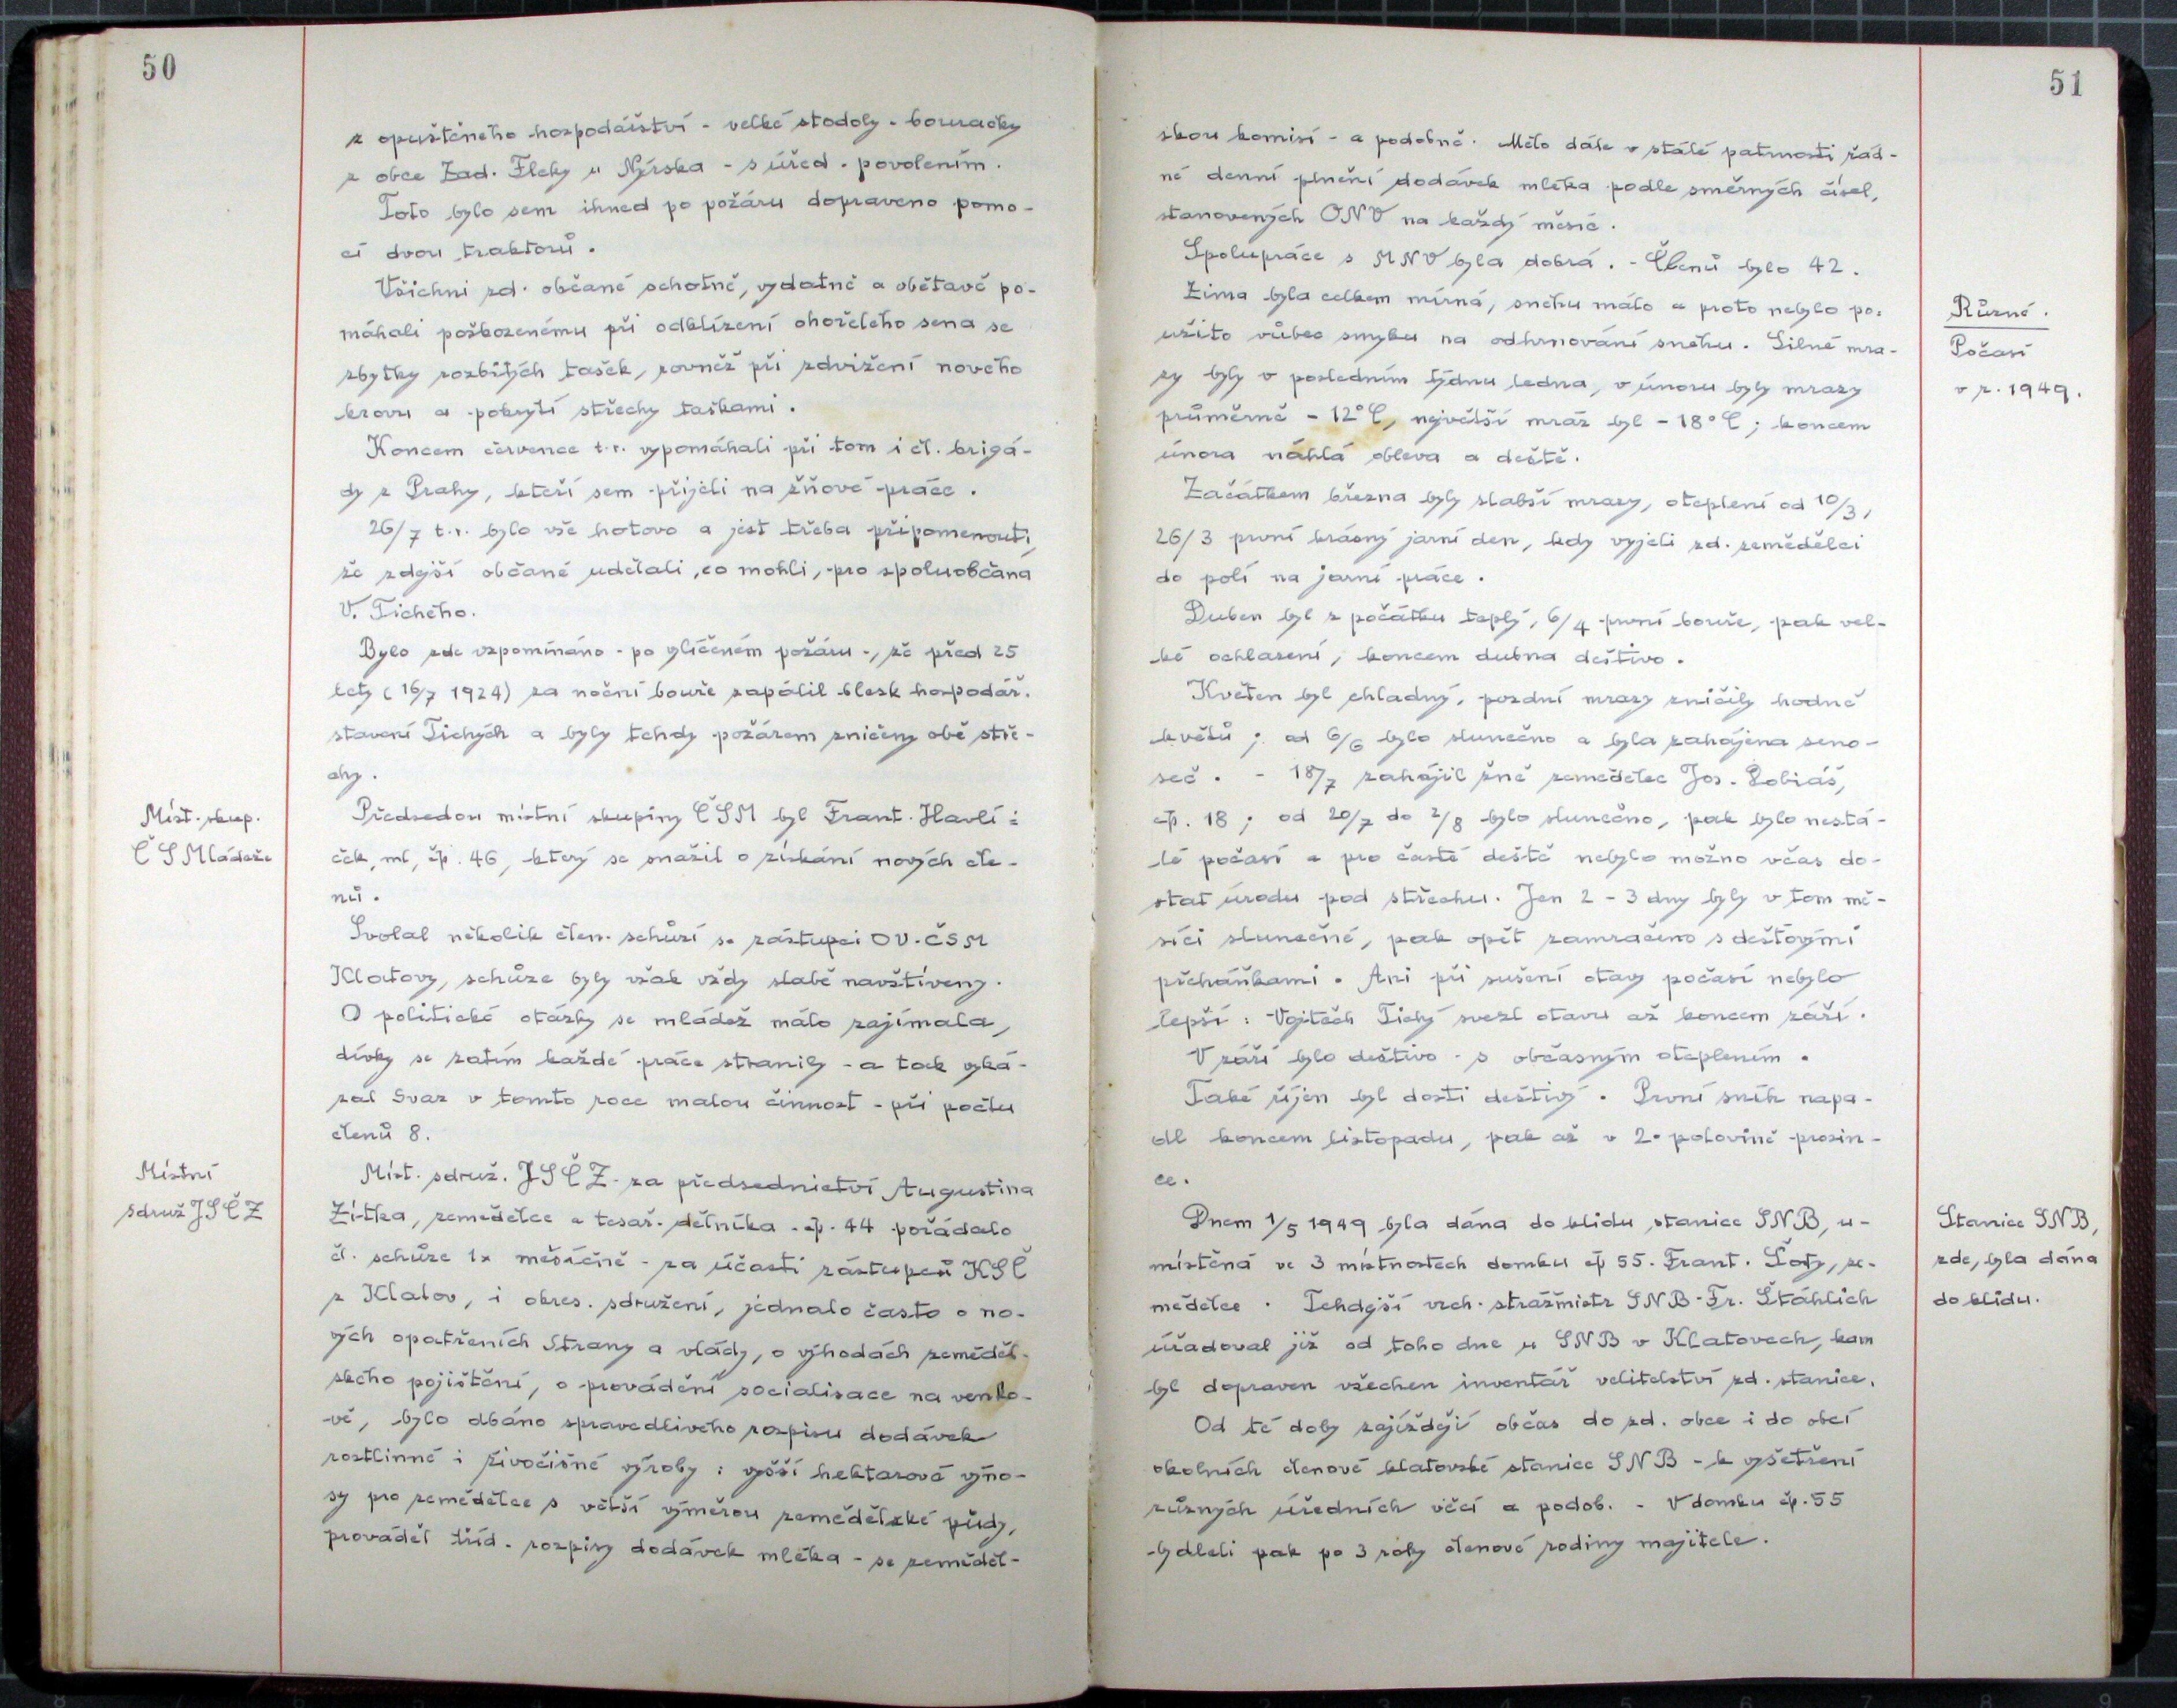 50
z opuštěného hospodářství - velké stodoly - bouračky
z obce Zad. Fleky u Nýrska - s úřed. povolením.
Toto bylo sem ihned po požáru dopraveno pomo-
cí dvou traktorů.
Všichni zd. občané ochotně, vydatně a obětavě po-
máhali poškozenému při odklízení ohořelého sena se
zbytky rozbitých tašek, rovněž při zdvižení nového
krovu a pokrytí střechy taškami.
Koncem července t.r. vypomáhali při tom i čl. brigá-
dy z Prahy, kteří sem přijeli na žňové práce.
26/7 t.r. bylo vše hotovo a jest třeba připomenouti,
že zdejší občané udělali, co mohli, pro spoluobčana
V. Tichého.
Bylo zde vzpomínáno - po vylíčeném požáru -, že před 25
lety (16/7 1924) za noční bouře zapálil blesk hospodář.
stavení Tichých a byly tehdy požárem zničeny obě stře-
chy.
Míst. skup.
ČSMládeže
Předsedou místní skupiny ČSM byl Frant. Havlí-
ček, ml, čp. 46, který se snažil o získání nových čle-
nů.
Svolal několik člen. schůzí se zástupci OV-ČSM
Klatovy, schůze byly však vždy slabě navštíveny.
O politické otázky se mládež málo zajímala,
dívky se zatím každé práce stranily - a tak vyká-
zal Svaz v tomto roce malou činnost - při počtu
členů 8.
Místní
sdruž JSČZ
Míst. sdruž. JSČZ - za předsednictví Augustina
Žítka, zemědělce a tesař. dělníka - čp. 44 pořádalo
čl. schůze 1x měsíčně - za účasti zástupců KSČ
z Klatov, i okres. sdružení, jednalo často o no-
vých opatřeních Strany a vlády, o výhodách zeměděl-
ského pojištění, o provádění socialisace na venko-
vě, bylo dbáno spravedlivého rozpisu dodávek
rostlinné i živočišné výroby: vyšší hektarové výno-
sy pro zemědělce s větší výměrou zemědělské půdy,
provádel tříd. rozpisy dodávek mléka - se zeměděl-
51
skou komisí - a podobně. Mělo dále v stálé patrnosti řád-
né denní plnění dodávek mléka podle směrných čísel,
stanovených ONV na každý měsíc.
Spolupráce s MNV byla dobrá. - Členů bylo 42.
Různé.
Počasí
v r. 1949.
Zima byla celkem mírná, sněhu málo a proto nebylo po-
užito vůbec smyku na odhrnování sněhu. Silné mra-
zy byly v posledním týdnu ledna, v únoru byly mrazy
průměrně - 12°C, největší mráz byl - 18°C; koncem
února náhlá obleva a deště.
Začátkem března byly slabší mrazy, oteplení od 10/3,
26/3 první krásný jarní den, kdy vyjeli zd. zemědělci
do polí na jarní práce.
Duben byl z počátku teplý, 6/4 první bouře, pak vel-
ké ochlazení, koncem dubna deštivo.
Květen byl chladný, pozdní mrazy zničily hodně
květů; od 6/6 bylo slunečno a byla zahájena seno-
seč. - 18/7 zahájil žně zemědělec Jos. Tobiáš,
čp. 18; od 20/7 do 2/8 bylo slunečno, pak bylo nestá-
lé počasí a pro časté deště nebylo možno včas do-
stat úrodu pod střechu. Jen 2 - 3 dny byly v tom mě-
síci slunečné, pak opět zamračeno s dešťovými
přeháňkami. Ani při sušení otavy počasí nebylo
lepší: Vojtěch Tichý svezl otavu až koncem září.
V září bylo deštivo - s občasným oteplením.
Také říjen byl dosti deštivý. První sníh napa-
dl koncem listopadu, pak až v 2. polovině prosin-
ce.
Stanice SNB,
zde, byla dána
do klidu.
Dnem 1/5 1949 byla dána do klidu stanice SNB, u-
místěná ve 3 místnostech domku čp 55. Frant. Šoty, ze-
mědělce. Tehdejší vrch. strážmistr SNB - Fr. Štáhlich
úřadoval již od toho dne u SNB v Klatovech, kam
byl dopraven všechen inventář velitelství zd. stanice.
Od té doby zajíždějí občas do zd. obce i do obcí
okolních členové klatovské stanice SNB - k vyšetření
různých úředních věcí a podob. - V domku čp. 55
bydleli pak po 3 roky členové rodiny majitele.